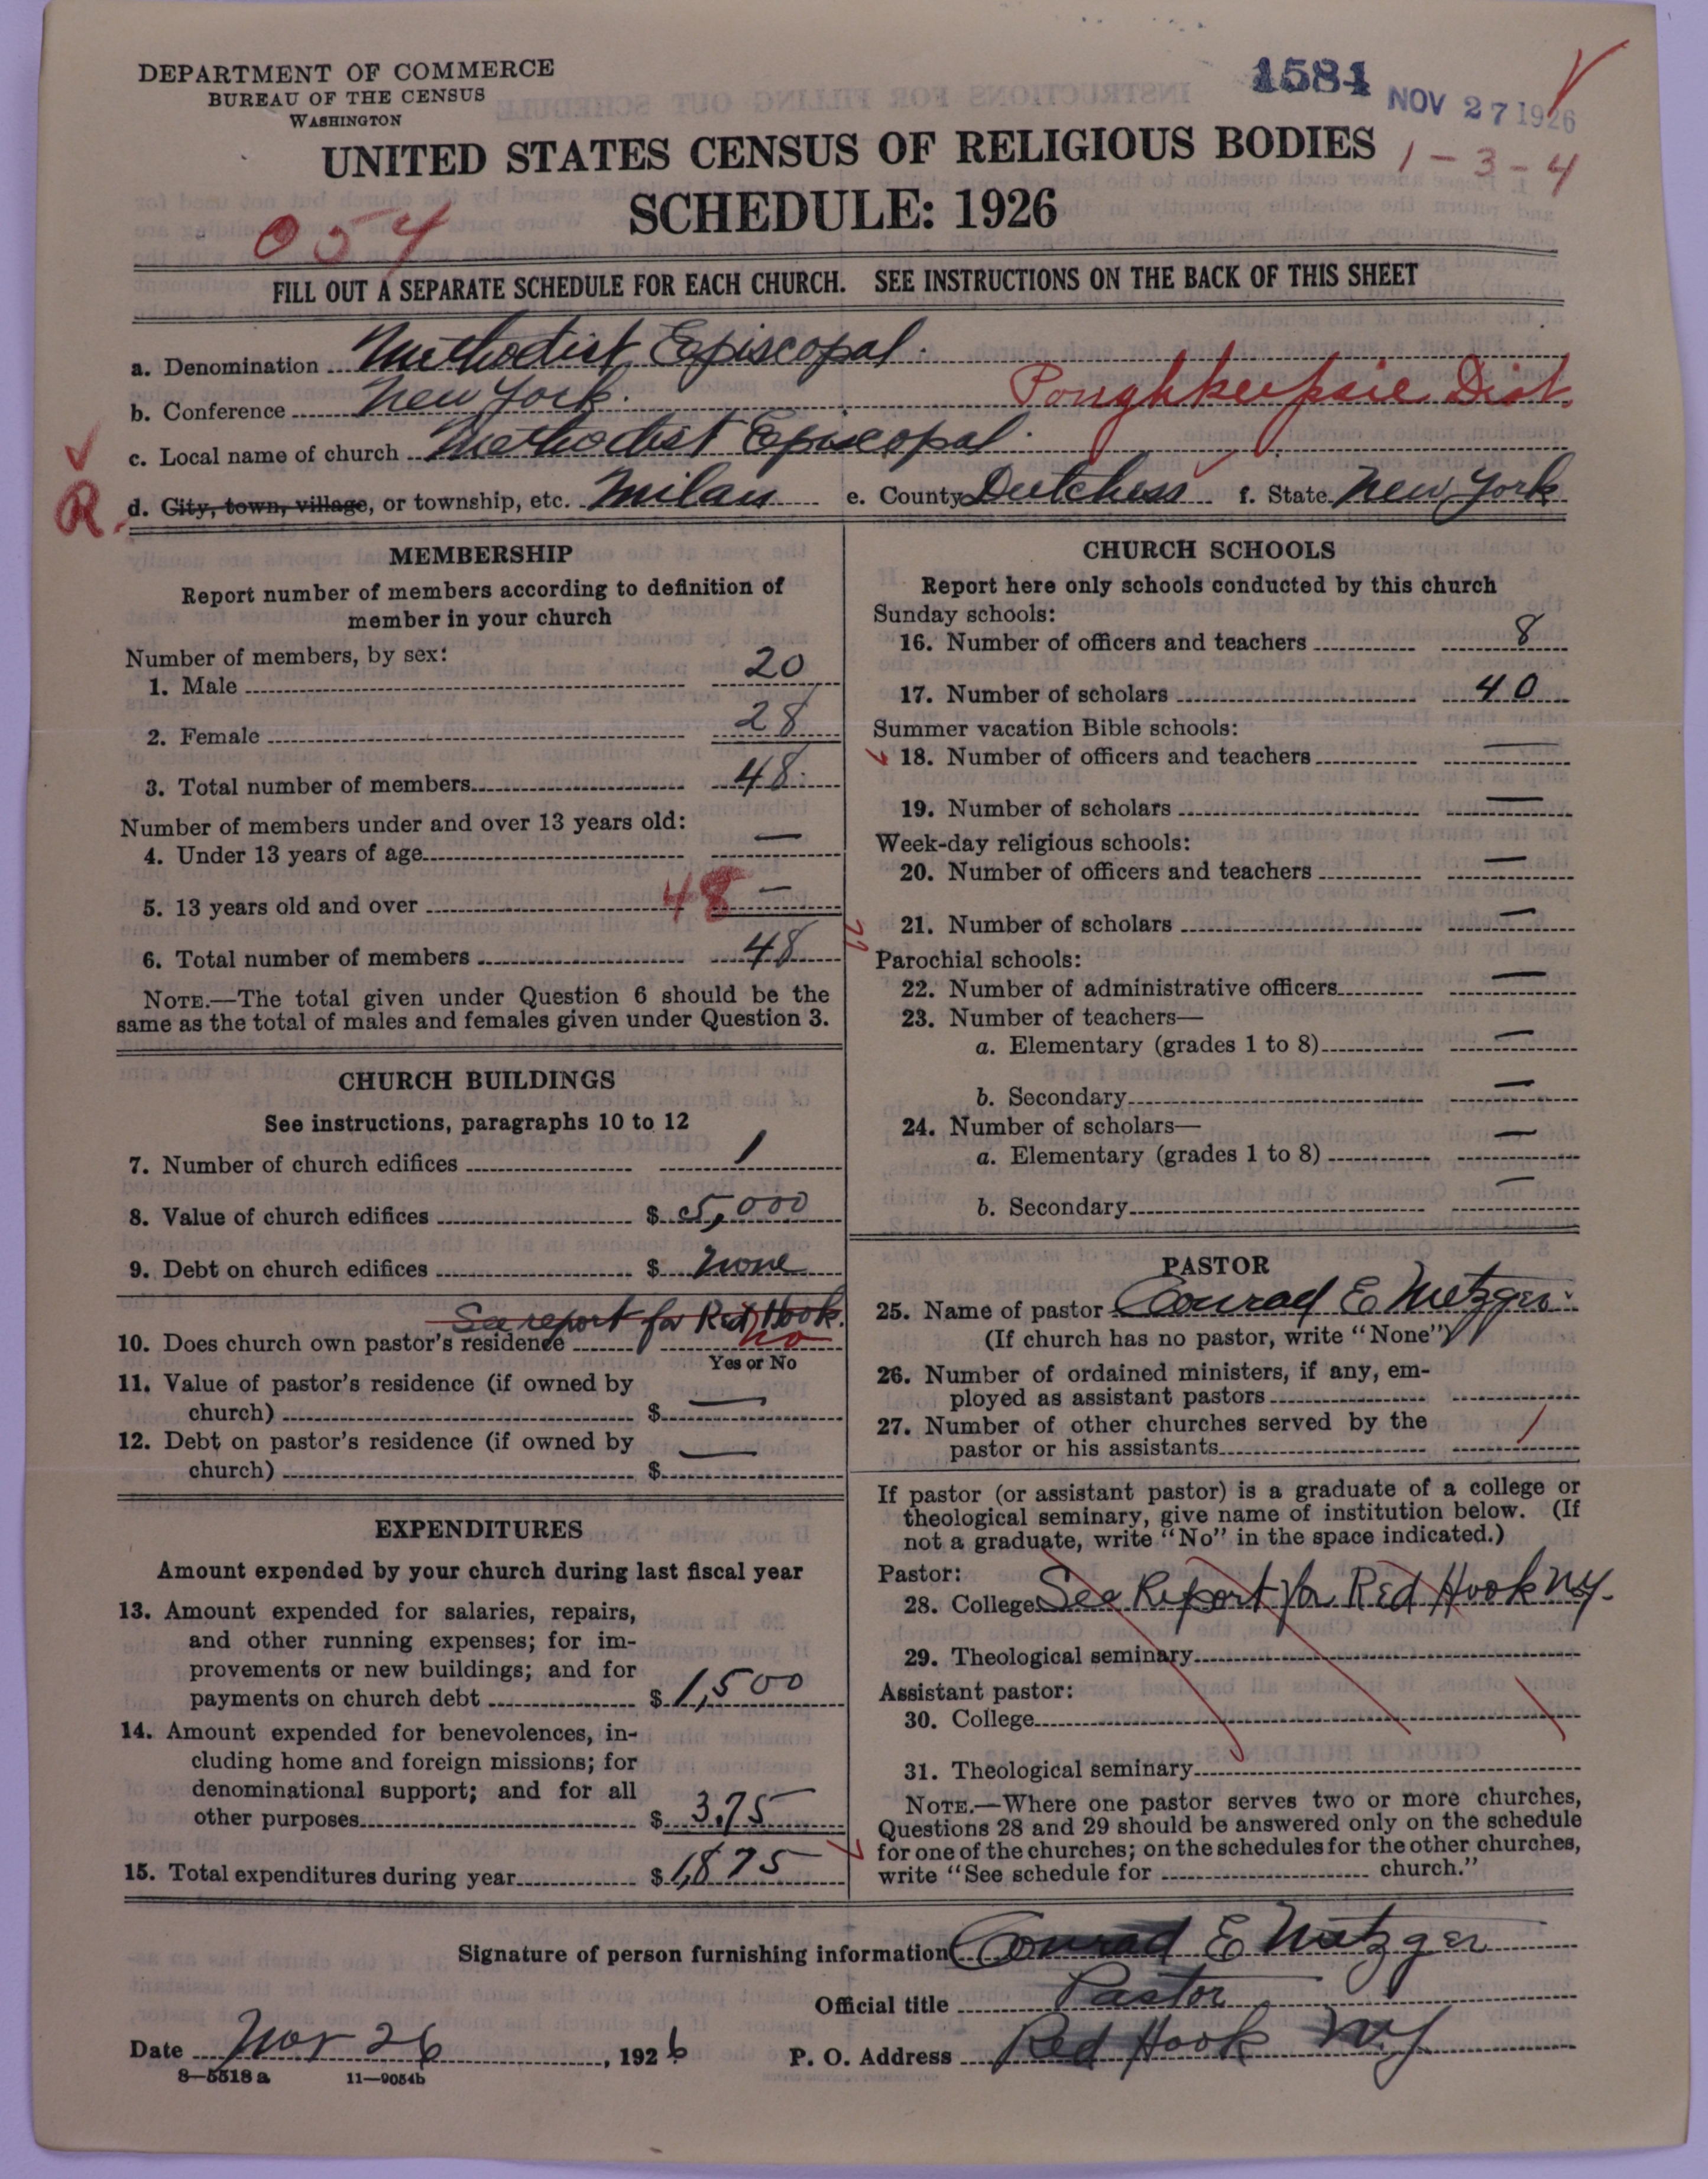 DEPARTMENT OF COMMERCE
BUREAU OF THE CENSUS
WASHINGTON
1584
NOV 27 1926
UNITED STATES CENSUS OF RELIGIOUS BODIES
1-3-4
SCHEDULE: 1926
054
FILL OUT A SEPARATE SCHEDULE FOR EACH CHURCH. SEE INSTRUCTIONS ON THE BACK OF THIS SHEET
a. Denomination Methodist Episcopal.
b. Conference New York. Poughkeepsie Dist.
c. Local name of church Methodist Episcopal.
R. d. City, town, village, or township, etc. Milan e. County Dutchess f. State New York
MEMBERSHIP
Report number of members according to definition of
member in your church
Number of members, by sex:
1. Male 20
2. Female 28
3. Total number of members 48
Number of members under and over 13 years old:
4. Under 13 years of age —
5. 13 years old and over 48 —
6. Total number of members 48
NOTE.—The total given under Question 6 should be the
same as the total of males and females given under Question 3.
CHURCH BUILDINGS
See instructions, paragraphs 10 to 12
7. Number of church edifices 1
8. Value of church edifices $ 5,000
9. Debt on church edifices $ None
See report for Red Hook.
10. Does church own pastor's residence no
Yes or No
11. Value of pastor's residence (if owned by
church) $ —
12. Debt on pastor's residence (if owned by
church) $ —
EXPENDITURES
Amount expended by your church during last fiscal year
13. Amount expended for salaries, repairs,
and other running expenses; for im-
provements or new buildings; and for
payments on church debt $ 1,500
14. Amount expended for benevolences, in-
cluding home and foreign missions; for
denominational support; and for all
other purposes $ 375
15. Total expenditures during year $ 1,875
CHURCH SCHOOLS
Report here only schools conducted by this church
Sunday schools:
16. Number of officers and teachers 8
17. Number of scholars 40
Summer vacation Bible schools:
18. Number of officers and teachers —
19. Number of scholars —
Week-day religious schools:
20. Number of officers and teachers —
21. Number of scholars —
Parochial schools:
22. Number of administrative officers —
23. Number of teachers—
a. Elementary (grades 1 to 8) —
b. Secondary —
24. Number of scholars—
a. Elementary (grades 1 to 8) —
b. Secondary —
PASTOR
25. Name of pastor Conrad E Metzger
(If church has no pastor, write "None")
26. Number of ordained ministers, if any, em-
ployed as assistant pastors
27. Number of other churches served by the
pastor or his assistants 1
If pastor (or assistant pastor) is a graduate of a college or
theological seminary, give name of institution below. (If
not a graduate, write "No" in the space indicated.)
Pastor:
28. College See Report for Red Hook NY.
29. Theological seminary
Assistant pastor:
30. College
31. Theological seminary
NOTE.—Where one pastor serves two or more churches,
Questions 28 and 29 should be answered only on the schedule
for one of the churches; on the schedules for the other churches,
write "See schedule for church."
Signature of person furnishing information Conrad E Metzger
Official title Pastor
Date Nov 26, 1926 P. O. Address Red Hook N.Y.
8—5518 a 11—9054b